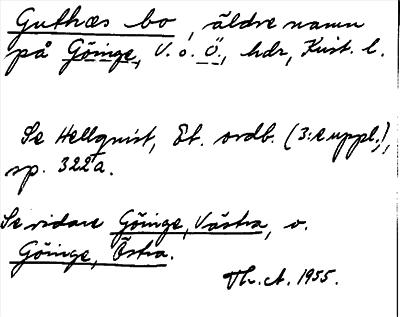 Guthæs bo, äldre namn
på Göinge, V. o. Ö., hdr, Krist. l.
Se Hellquist, Et. ordb. (3:e uppl.),
sp. 322a.
Se vidare Göinge, Västra, o.
Göinge, Östra.
Th. A. 1955.